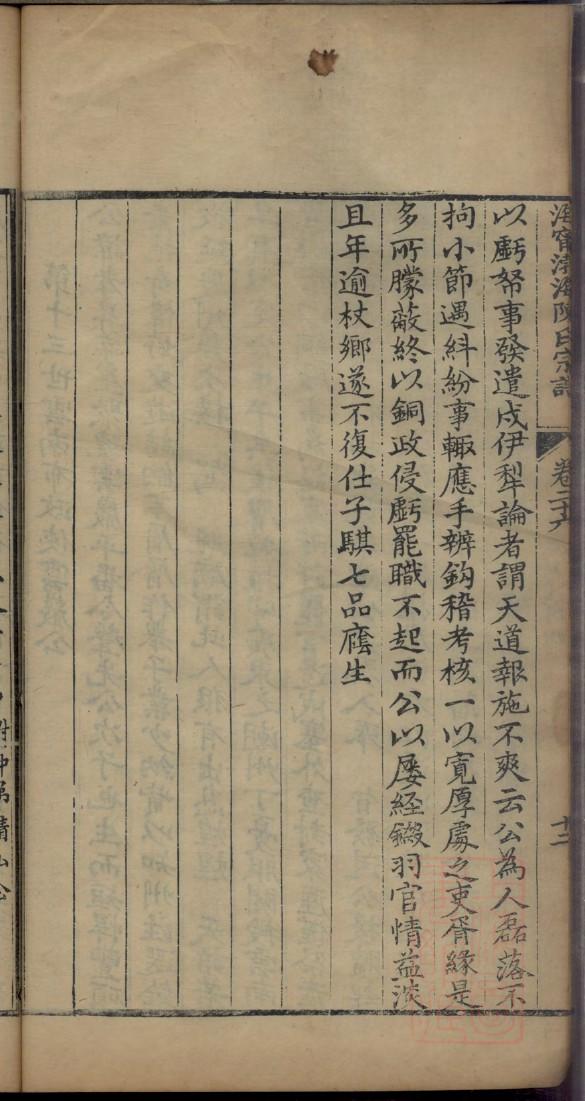 海寧渤海陳氏宗譜 卷二十六 十二
以虧帑事發遣戍伊犂論者謂天道報施不爽云公為人磊落不
拘小節遇紏紛事輙應手辨鈎稽考核一以寛厚處之吏胥緣是
多所朦蔽終以銅政侵虧罷職不起而公以屡經鎩羽官情益淡
且年逾杖鄉遂不復仕子騏七品廕生